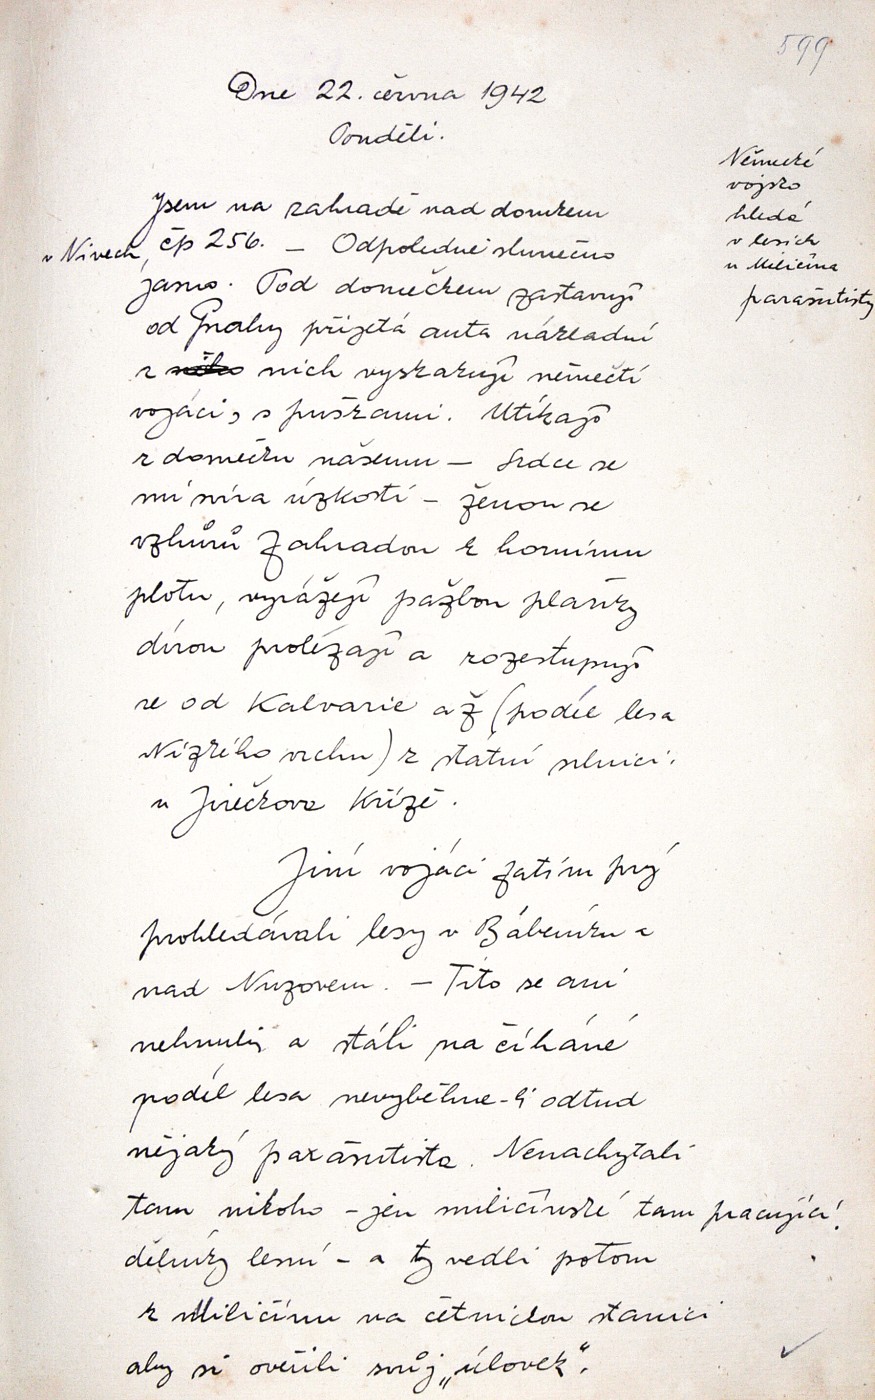 599
Dne 22. června 1942
Pondělí.
Německé
vojsko
hledá
v lesích
u Miličína
parašutisty
Jsem na zahradě nad domkem
v Nivech, čp 256. — Odpoledne slunečno
jasno. Pod domečkem zastavují
od Prahy přijetá auta nákladní
z nich vyskakují němečtí
vojáci, s puškami. Utíkají
k domečku našemu — Srdce se
mi svírá úzkostí — ženou se
vzhůru zahradou k hornímu
plotu, vyrážejí pažbou plaňky
dírou prolézají a rozestupují
se od Kalvarie až (podél lesa
Nízkého vrchu) k státní silnici.
u Jirečkova Kříže.
Jiní vojáci zatím prý
prohledávali lesy v Bábeníku a
nad Nuzovem. — Tito se ani
nehnuli a stáli na číháné
podél lesa nevyběhne-li odtud
nějaký parašutista. Nenachytali
tam nikoho — jen miličínské tam pracující
dělníky lesní — a ty vedli potom
k Miličínu na četnickou stanici
aby si ověřili svůj „úlovek“.